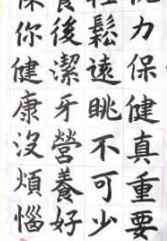 力保健真重要
鬆遠眺不可少
後潔牙營養好
你健康沒煩惱